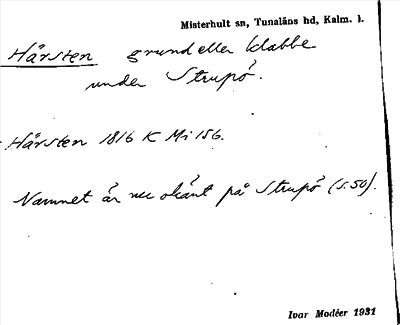 Misterhult sn, Tunaläns hd, Kalm. l.
Hårsten grund eller klabbe
under Strupö.
Hårsten 1816 K Mi 156.
Namnet är nu okänt på Strupö (s. 50).
Ivar Modéer 1931